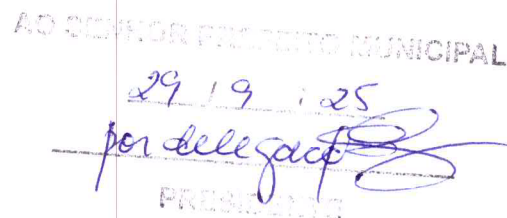 AO SENHOR PREFEITO MUNICIPAL
29 / 9 / 25
por delegação
PRESIDENTE